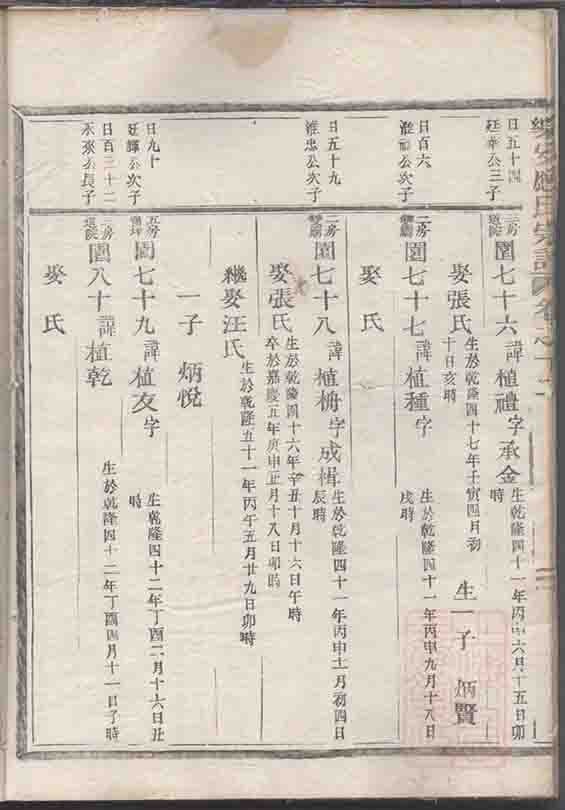 日五十四
廷華公三子
三房
圓七十六諱植禮字承金
生於乾隆四十一年丙申六月十五日卯
時
娶張氏
生於乾隆四十七年壬寅四月初
十日亥時
生一子 炳賢
日百六
公次子
二房
圓七十七諱植種字
生於乾隆四十一年丙申九月十八日
戌時
娶氏
日五十九
維忠公次子
二房
圓七十八諱植栴字成楫
生於乾隆四十一年丙申十一月初四日
辰時
娶張氏
生於乾隆四十六年辛丑十月十六日午時
卒於嘉慶五年庚申正月十八日卯時
繼娶汪氏
生於乾隆五十一年丙午五月廿九日卯時
一子 炳悅
日九十
廷輝公次子
五房
圓七十九諱植友字
生乾隆四十二年丁酉二月十六日丑
時
日百三十二
永來公長子
三房
圓八十諱植乾
生於乾隆四十二年丁酉四月十一日子時
娶氏